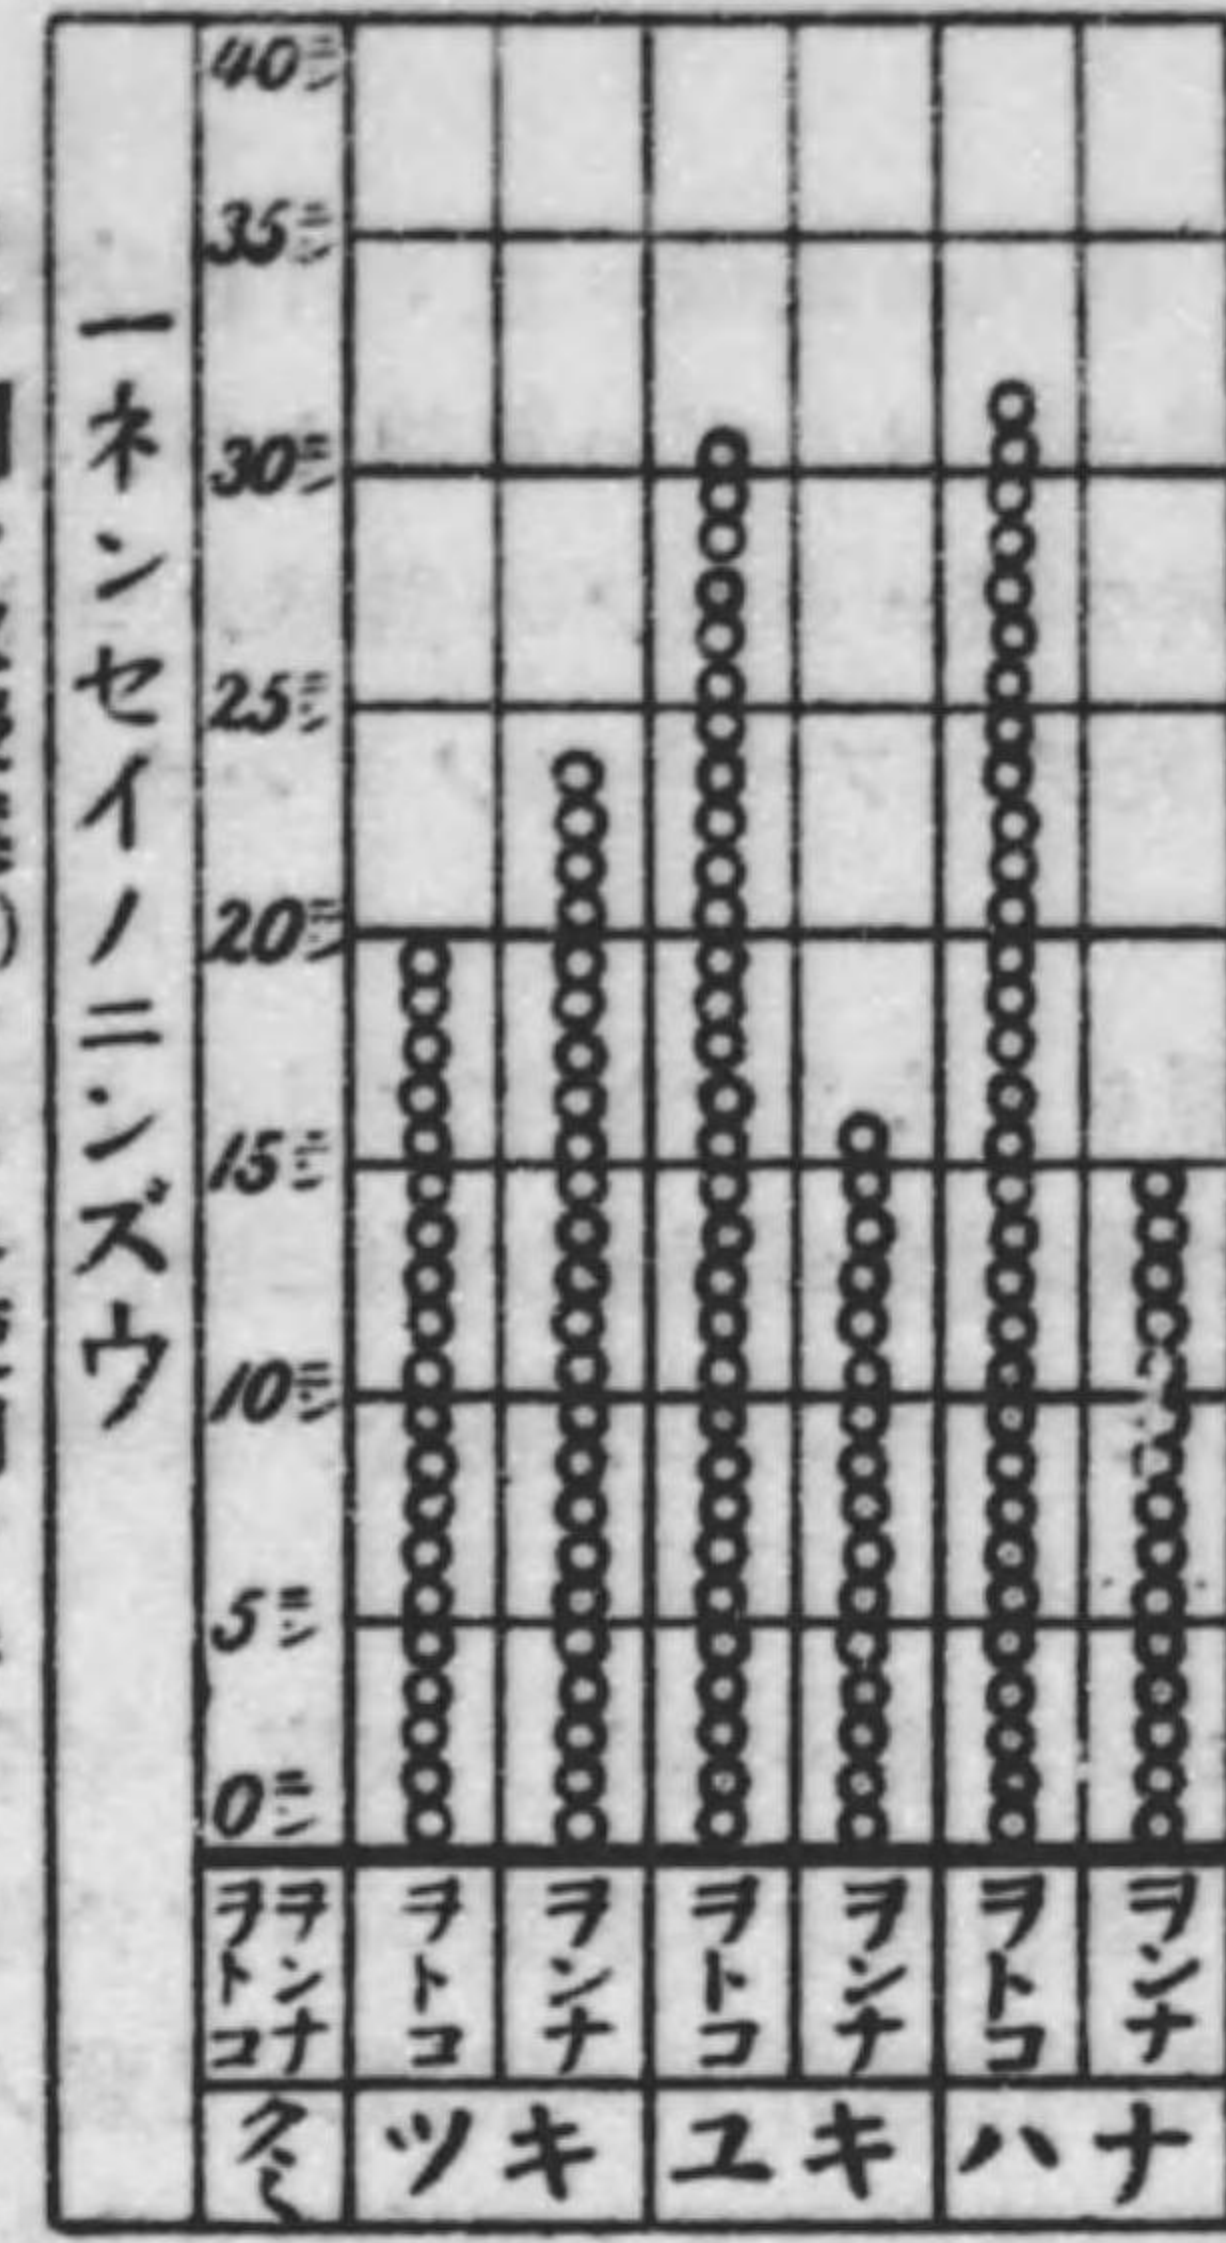 一ネンセイノニンズウ
40ニン
35ニン
30ニン
25ニン
20ニン
15ニン
10ニン
5ニン
0ニン
ヲンナ
ヲトコ
ヲトコ
ヲンナ
ヲトコ
ヲンナ
ヲトコ
ヲンナ
クミ
ツキ
ユキ
ハナ